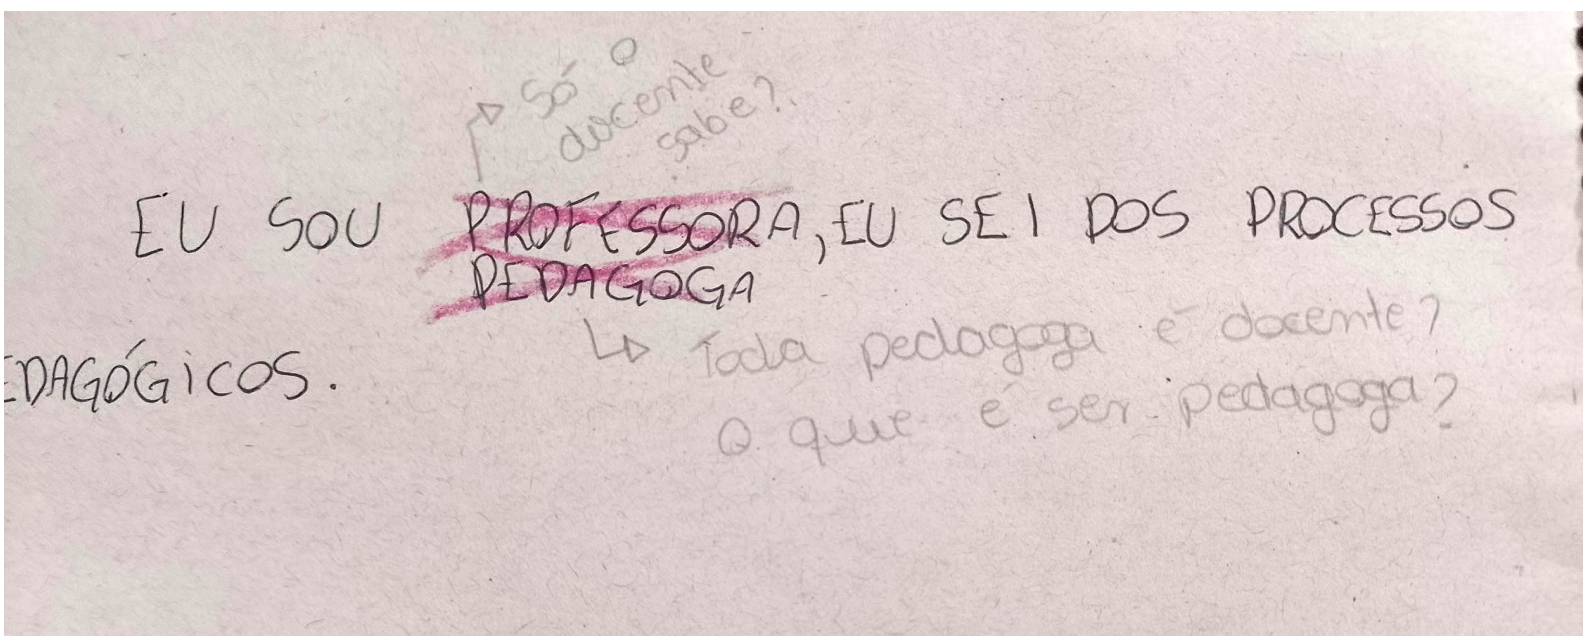 Só o
docente
sabe?
EU SOU PROFESSORA, EU SEI DOS PROCESSOS
PEDAGOGA
Toda pedagoga é docente?
O que é ser pedagoga?
EDAGÓGICOS.